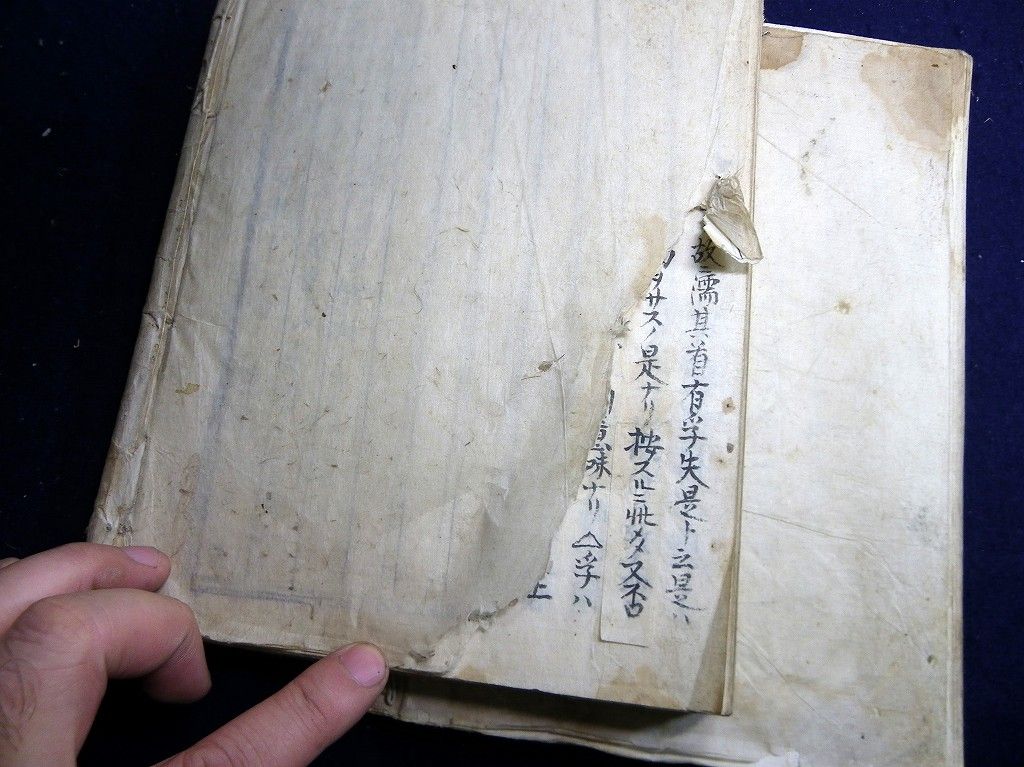 故ニ濡其首有孚失是ト云是ハ
タサスノ是ナリ按スルニ此メタ又否
意味ナリ△孚ハ
上